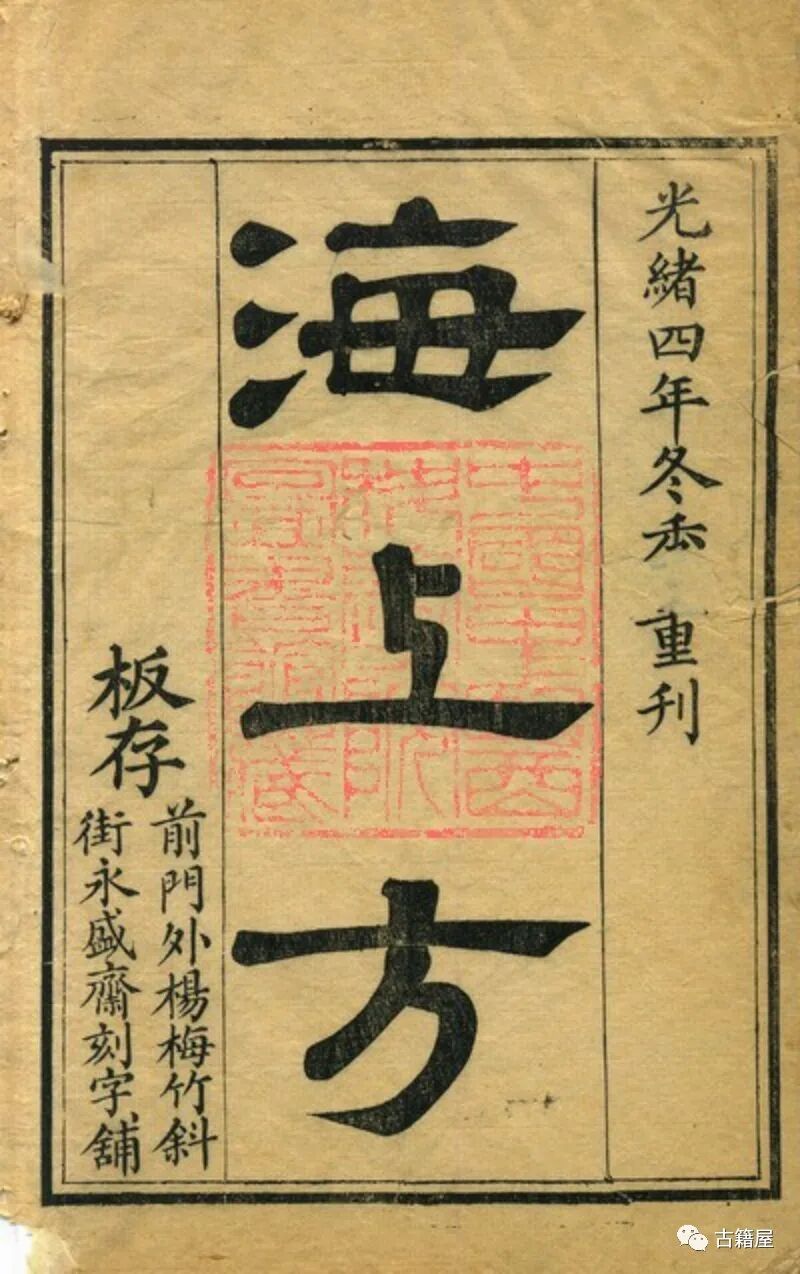 光緒四年冬 重刊
海上方
板存
前門外楊梅竹斜
街永盛齋刻字舖
古籍屋